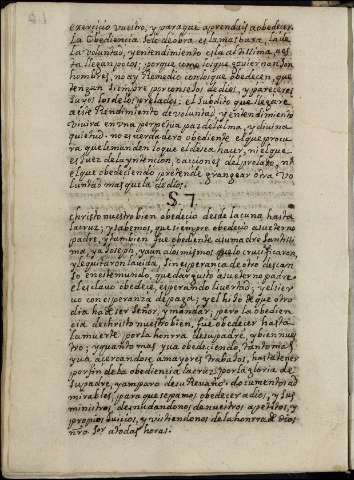 exerciçio vuestro, y paraque aprendais a obedeçer.
La obediencia solo de obra, es la mas baxa, la de
la voluntad, y entendimiento es la altissima, aes
ta llegan pocos; porque como los que goviernan son
hombres, no ay Remedio con los que obedecen, que
tengan siempre por consejos de dios, y pareceres
suyos los de los prelados. el subdito que llegare
a este Rendimiento de voluntad, y entendimiento
vivira en una perpetua paz del alma, y divina
quietud. no es verdadero obediente el que procu
ra que le manden lo que el desea hacer, ni el que
es Juez de la yntencion, y acciones del prelado, ni
el que obedeciendo pretende grangear otra vo
luntad mas que la de dios.
S. 7.
christo nuestro bien obedecio desde la cuna hasta
la cruz; y sabemos, que siempre obedecio a su eterno
padre, y tambien fue obediente a su madre santissi
ma, y a Joseph, y aun a los mismos que lo crucificaron,
y le quitaron la vida, sin esperanza de otro descan
so en este mundo, que dar gusto a su eterno padre
el esclavo obedece, esperando libertad; y el sier
vo con esperanza de paga; y el hijo de que otro
dia ha de ser señor, y mandar; pero la obedien
cia de christo nuestro bien, fue obedecer hasta
la muerte por la honrra de su padre, y bien nues
tro; y quanto mas yva obedeciendo, tanto mas
yva acercandose a mayores trabajos, hasta tener
por fin de la obediencia la cruz, por la gloria de
su padre, y amparo de su Revaño: documentos ad
mirables, para que sepamos obedecer a dios, y sus
ministros, desnudandonos de nuestros apetitos, y
propios juicios, y vistiendonos de la honrra de Dios
nro sor a todas horas.